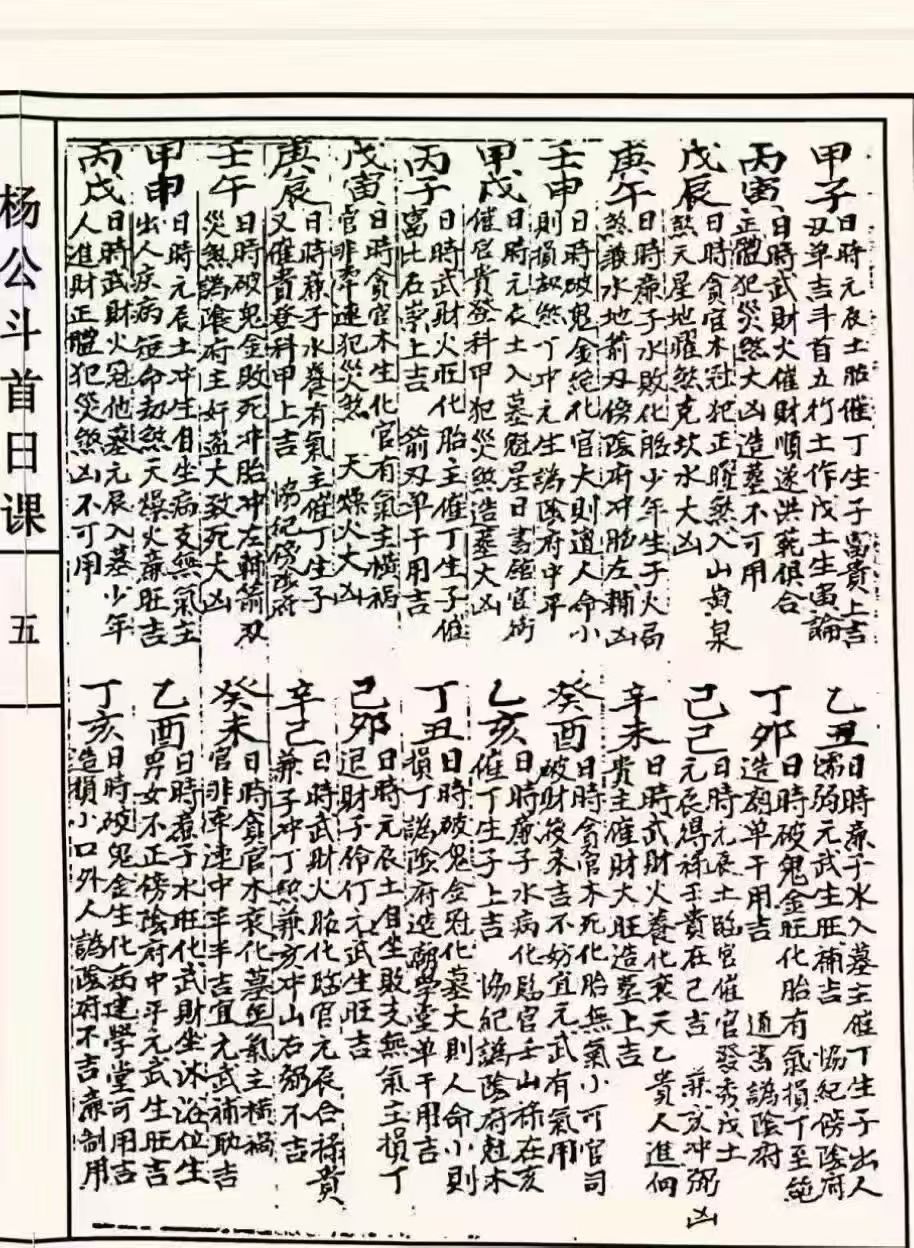 甲子
日時元辰土胎催丁生子富貴上吉
刃单吉斗首五行土作戊土生寅論
丙寅
日時武財火催財順遂洪範俱合
正體犯災煞大凶造墓不可用
戊辰
日時貪官木冠犯正曜煞入山黄泉
煞天星地曜煞克坎水大凶
庚午
日時廉子水敗化胎少年生子火局
煞兼水地箭刃傍陰府冲胎左輔凶
壬申
日時破鬼金絕化官大則遭人命小
則損劫煞丁冲元生謅陰府中平
甲戌
日時元辰土入墓魁星日書館官衙
催官貴登科甲犯災煞造墓大凶
丙子
日時武財火旺化胎主催丁生子催
富比石崇上吉 箭刃单干用吉
戊寅
日時貪官木生化官有氣主横禍
官非牽連犯災煞 天燥火大凶
庚辰
日時廉子水養有氣主催丁生子
又催貴登科甲上吉 協紀傍陰府
壬午
日時破鬼金敗死冲胎冲左輔箭刃
災煞謅陰府主奸盗大致死大凶
甲申
日時元辰土冲生自坐病支無氣主
出人疾病短命劫煞天燥火廉旺吉
丙戌
日時武財火冠他墓元辰入墓少年
人進財正體犯災煞凶不可用
乙丑
日時廉子水入墓主催丁生子出人
懦弱元武生旺補吉 協紀傍陰府
丁卯
日時破鬼金旺化胎有氣損丁至絕
造葬单干用吉 通書謅陰府
己巳
日時元辰土臨官催官發秀戊土
元辰得祿手貴在己吉 兼亥冲弼凶
辛未
日時武財火養化衰天乙貴人進佃
貴主催財大旺造墓上吉
癸酉
日時貪官木死化胎無氣小可官司
破財後未吉不妨宜元武有氣用
乙亥
日時廉子水病化臨官壬山祿在亥
催丁生子上吉 協紀謅陰府尅木
丁丑
日時破鬼金冠化墓大則人命小則
損丁謅陰府造廟學堂单干用吉
己卯
日時元辰土自坐敗支無氣主損丁
退財子伶仃元武生旺吉
辛巳
日時武財火胎化臨官元辰合祿貴
兼子冲丁煞兼亥冲山右弼不吉
癸未
日時貪官木衰化墓無氣主横禍
官非牽連中平半吉宜元武補助吉
乙酉
日時廉子水旺化武財坐沐浴位生
男女不正傍陰府中平元武生旺吉
丁亥
日時破鬼金生化病建學堂可用吉
造損小口外人謅陰府不吉廉制用
杨公斗首日课
五